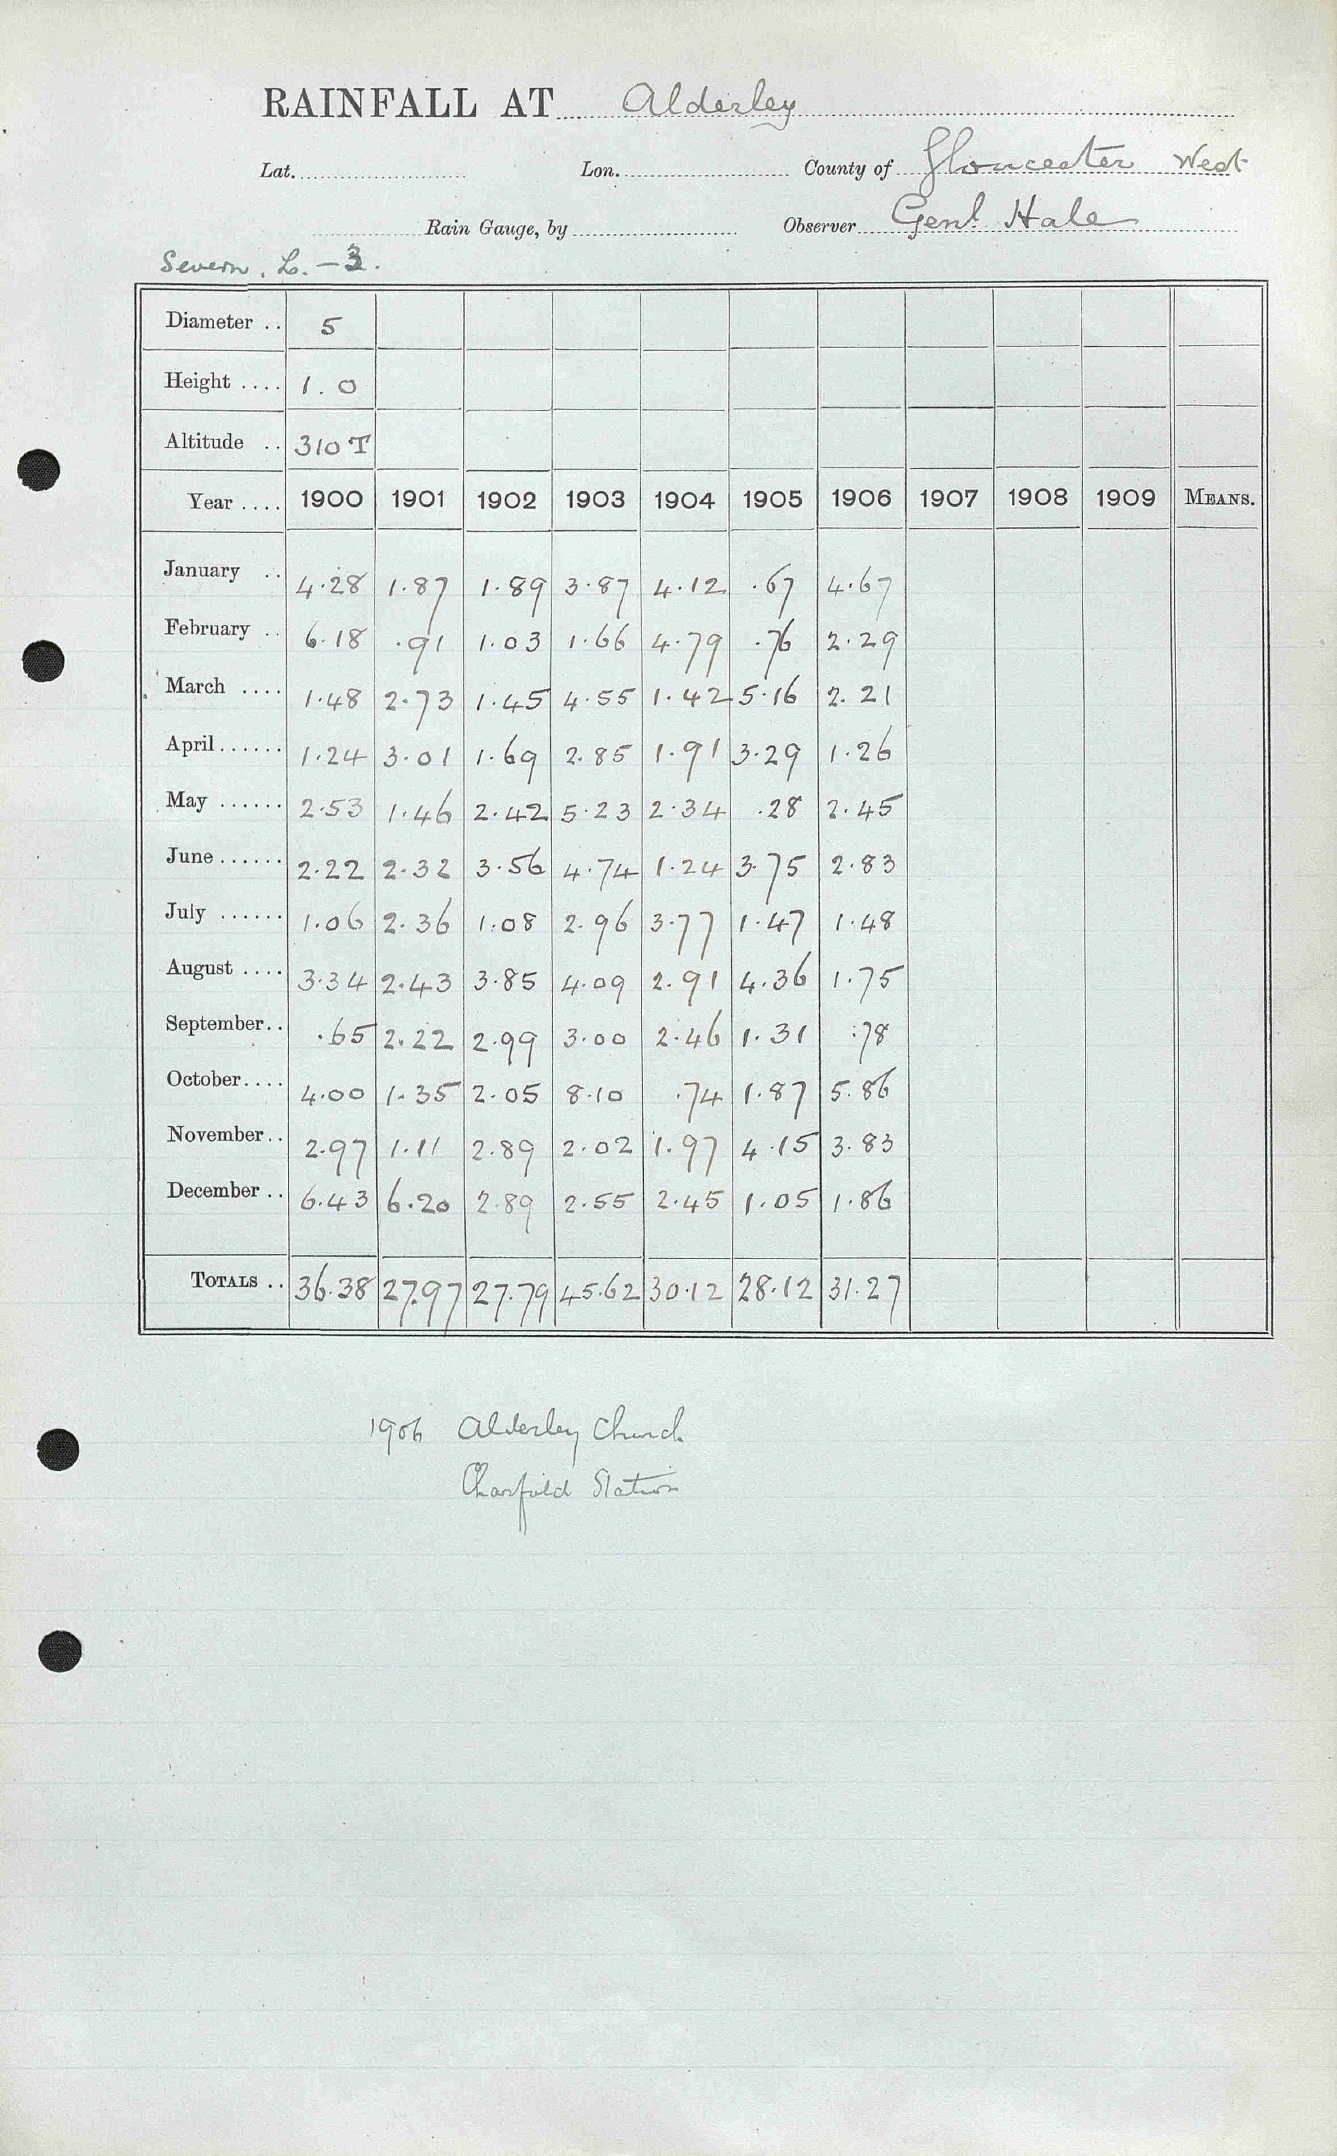 RAINFALL AT Alderley
Lat. Lon. County of Gloucester West
Rain Gauge, by Observer Genl. Hale
Severn. L. - 3.
Diameter .. 5
Height .... 1.0
Altitude .. 310 T
Year .... 1900 1901 1902 1903 1904 1905 1906 1907 1908 1909 MEANS.
January .. 4.28 1.87 1.89 3.87 4.12 .67 4.67
February .. 6.18 .91 1.03 1.66 4.79 .76 2.29
March .... 1.48 2.73 1.45 4.55 1.42 5.16 2.21
April ...... 1.24 3.01 1.69 2.85 1.91 3.29 1.26
May ...... 2.53 1.46 2.42 5.23 2.34 .28 2.45
June ...... 2.22 2.32 3.56 4.74 1.24 3.75 2.83
July ...... 1.06 2.36 1.08 2.96 3.77 1.47 1.48
August .... 3.34 2.43 3.85 4.09 2.91 4.36 1.75
September .. .65 2.22 2.99 3.00 2.46 1.31 .78
October .... 4.00 1.35 2.05 8.10 .74 1.87 5.86
November .. 2.97 1.11 2.89 2.02 1.97 4.15 3.83
December .. 6.43 6.20 2.89 2.55 2.45 1.05 1.86
TOTALS .. 36.38 27.97 27.79 45.62 30.12 28.12 31.27
1906 Alderley Church
Charfield Station